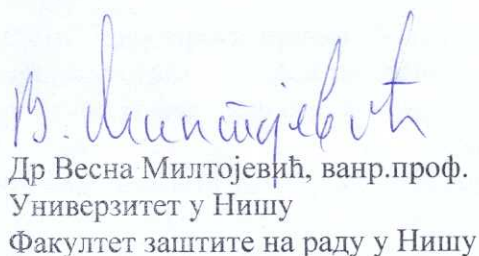 В. Милтојевић
Др Весна Милтојевић, ванр.проф.
Универзитет у Нишу
Факултет заштите на раду у Нишу